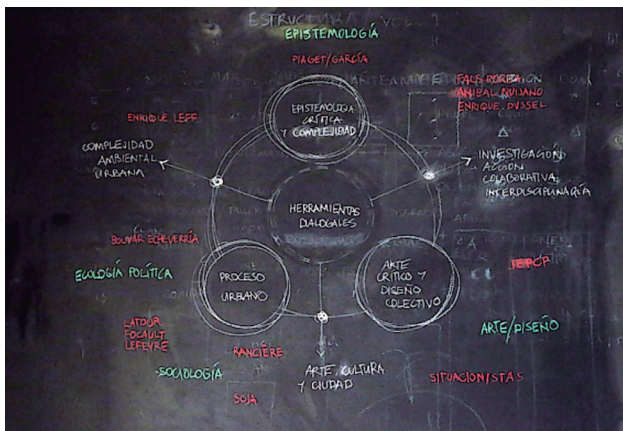 ESTRUCTURA VOL. 1
EPISTEMOLOGÍA
PIAGET/GARCÍA
FALS BORDA
ANIBAL QUIJANO
ENRIQUE DUSSEL
EPISTEMOLOGIA
CRÍTICA
Y COMPLEJIDAD
ENRIQUE LEFF
COMPLEJIDAD
AMBIENTAL
URBANA
INVESTIGACIÓN
ACCIÓN
COLABORATIVA
INTERDISCIPLINARIA
HERRAMIENTAS
DIALOGALES
BOLIVAR ECHEVERRÍA
ECOLOGÍA POLÍTICA
PROCESO
URBANO
ARTE
CRÍTICO Y
DISEÑO
COLECTIVO
LATOUR
FOCAULT
LEFEVRE
ARTE/DISEÑO
RANCIERE
SOCIOLOGÍA
ARTE, CULTURA
Y CIUDAD
SITUACIONISTAS
SOJA